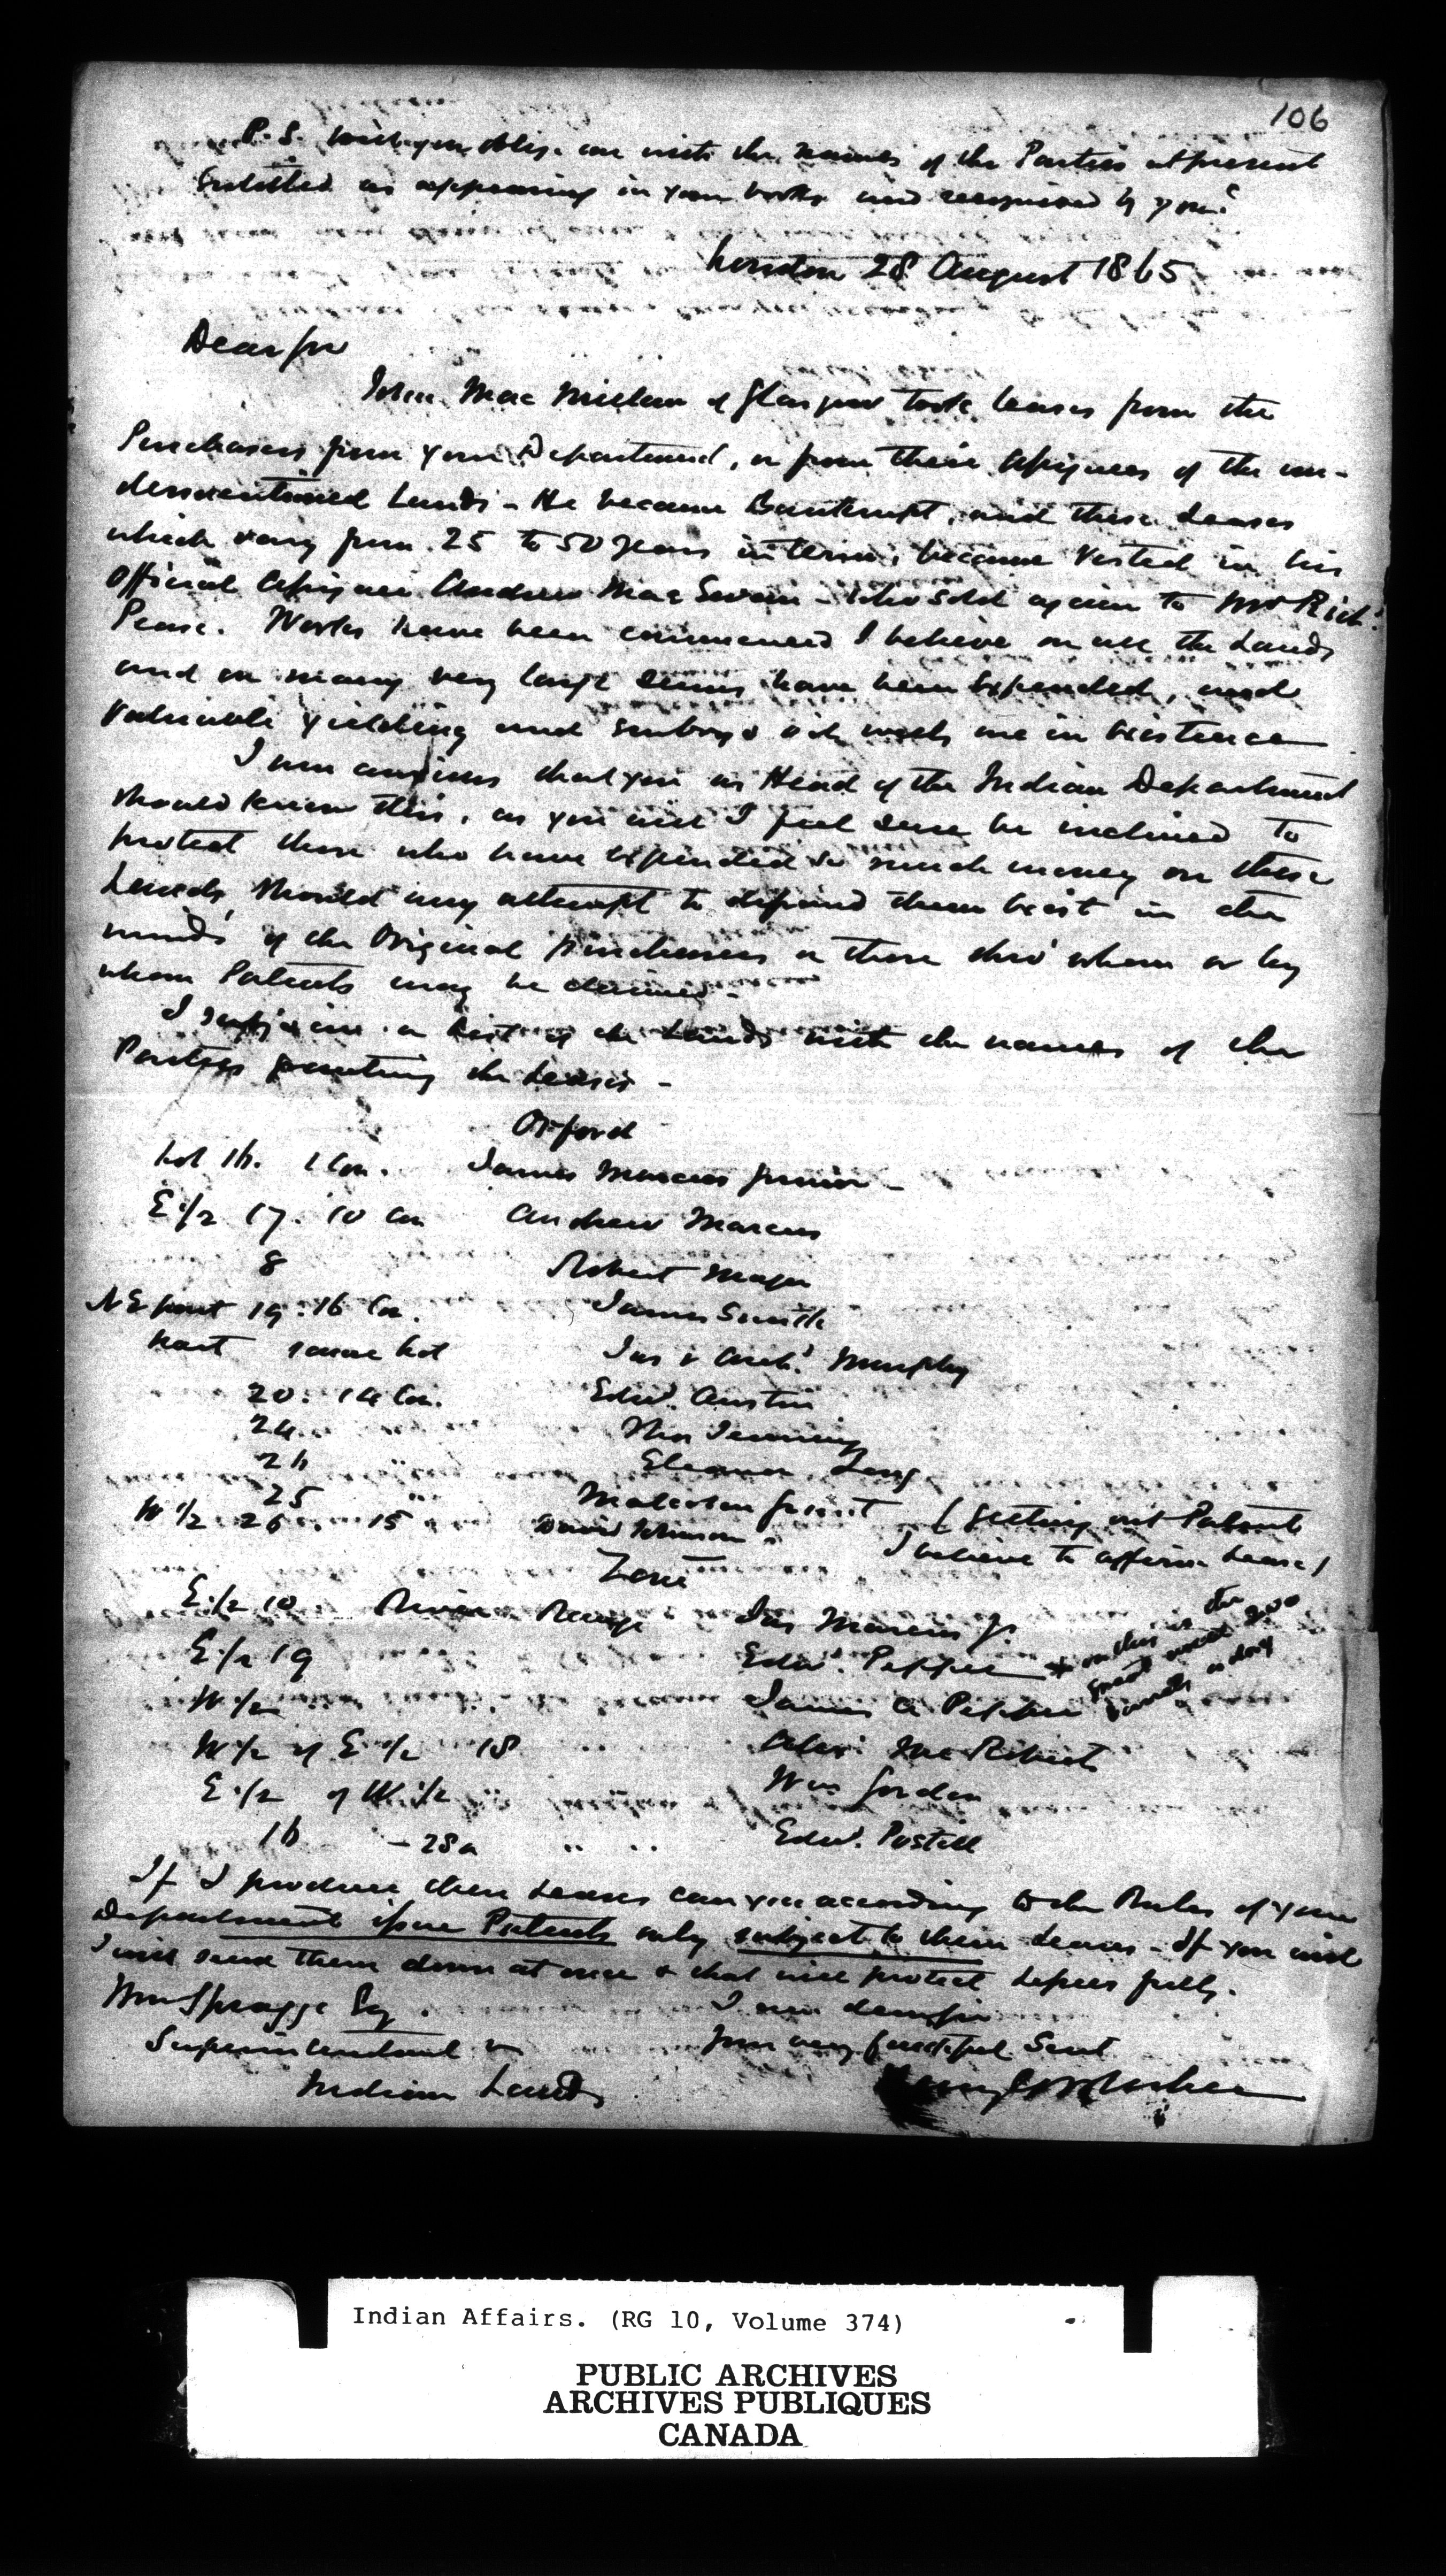 106
P.S. Will you oblige me with the names of the Parties at present
Entitled as appearing in your books and recognised by you?
London 28 August 1865
Dear Sir
John Mac of Glasgow took leases from the
Purchasers from your Department, or from their Assignees of the un-
dermentioned Lands - He became Bankrupt, and these Leases
which vary from 25 to 50 years in term, became Vested in his
Official Assignee Andrew Mac - who sold again to Mr Richd
Pease. Works have been commenced I believe on all the Lands
and on many very large sums have been Expended, and
valuable yielding and oil wells are in Existence
I am anxious that you as Head of the Indian Department
should know this, as you will I feel sure be inclined to
protect those who have expended so much money on these
Lands, should any attempt to defraud them Exist in the
minds of the Original purchasers or those thro' whom or by
whom Patents may be claimed -
I subjoin a List of the Lands with the names of the
Parties granting the Leases -
Orford
Lot 16. 1 Con. James Marcus Junior -
E 1/2 17. 10 Con Andrew Marcus
8 Robert
N E part 19. 16 Con. James Smith
part same Lot Jas & Archd Murphy
20. 14 Con. Edwd. Austin
24 .. Thos Jennings
26 .. Eleanor Long
25 .. Malcolm (Getting out Patent
W 1/2 26 .. 15 David Johnson I believe to affirm Lease)
Zone
E 1/2 10 River Range Jas Marcus Jr.
E 1/2 19 Edwd. Pepper + on this is the
W 1/2 James A Pepper great well 200
barrels a day
W 1/2 of E 1/2 18 .. Alexr Mac Roberts
E 1/2 of W 1/2 .. Wm Gordon
16 - 28a .. .. Edwd. Postill
If I produce these Leases can you according to the Rules of your
Department issue Patents only subject to their Leases - If you will
I will send them down at once & that will protect Lessees fully.
Wm Spragge Esq. I am dear Sir
Superintendent Your very faithful Servt
Indian Lands
Indian Affairs. (RG 10, Volume 374)
PUBLIC ARCHIVES
ARCHIVES PUBLIQUES
CANADA